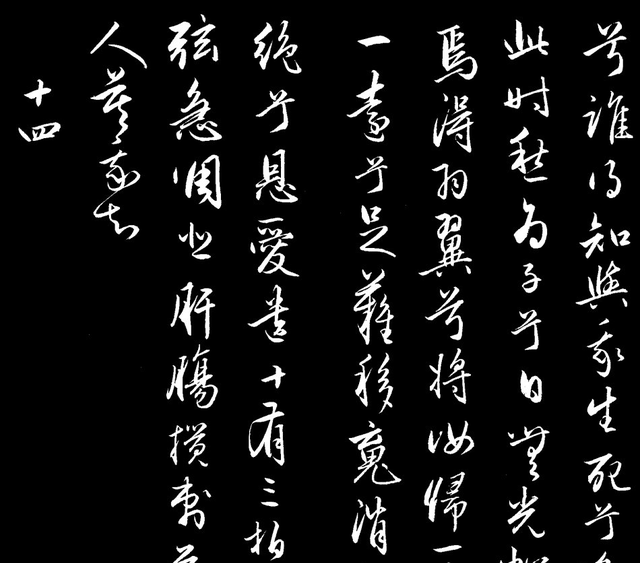 兮誰得知與我生死兮
此時愁為子兮日無光
焉得羽翼兮將汝歸一
一遠兮足難移魂消
絕兮恩愛遺十有三拍
弦急調悲肝腸攪刺
人莫我知
十四